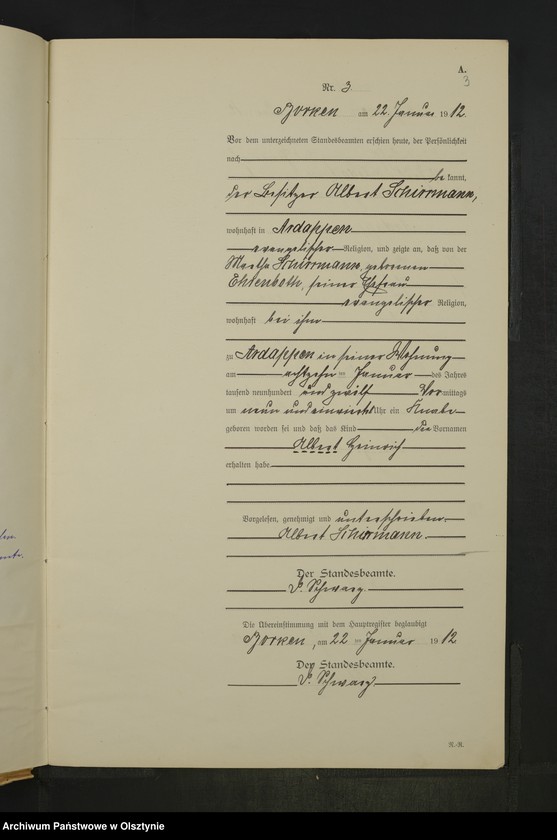 A.
3
Nr. 3.
Borken am 22. Januar 1912.
Vor dem unterzeichneten Standesbeamten erschien heute, der Persönlichkeit
nach
be kannt,
der Besitzer Albert Schirrmann,
wohnhaft in Ardappen
evangelischer Religion, und zeigte an, daß von der
Martha Schirrmann, geborenen
seiner Ehefrau
evangelischer Religion,
wohnhaft bei ihm
zu Ardappen in seiner Wohnung
am achtzehn ten Januar des Jahres
tausend neunhundert und zwölf Vor mittags
um neun und Uhr ein Knabe
geboren worden sei und daß das Kind die Vornamen
Albert Heinrich
erhalten habe
Vorgelesen, genehmigt und unterschrieben.
Albert Schirrmann.
Der Standesbeamte.
Schwarz.
Die Übereinstimmung mit dem Hauptregister beglaubigt
Borken, am 22 ten Januar 1912
Der Standesbeamte.
Schwarz
R.-R.
Archiwum Państwowe w Olsztynie